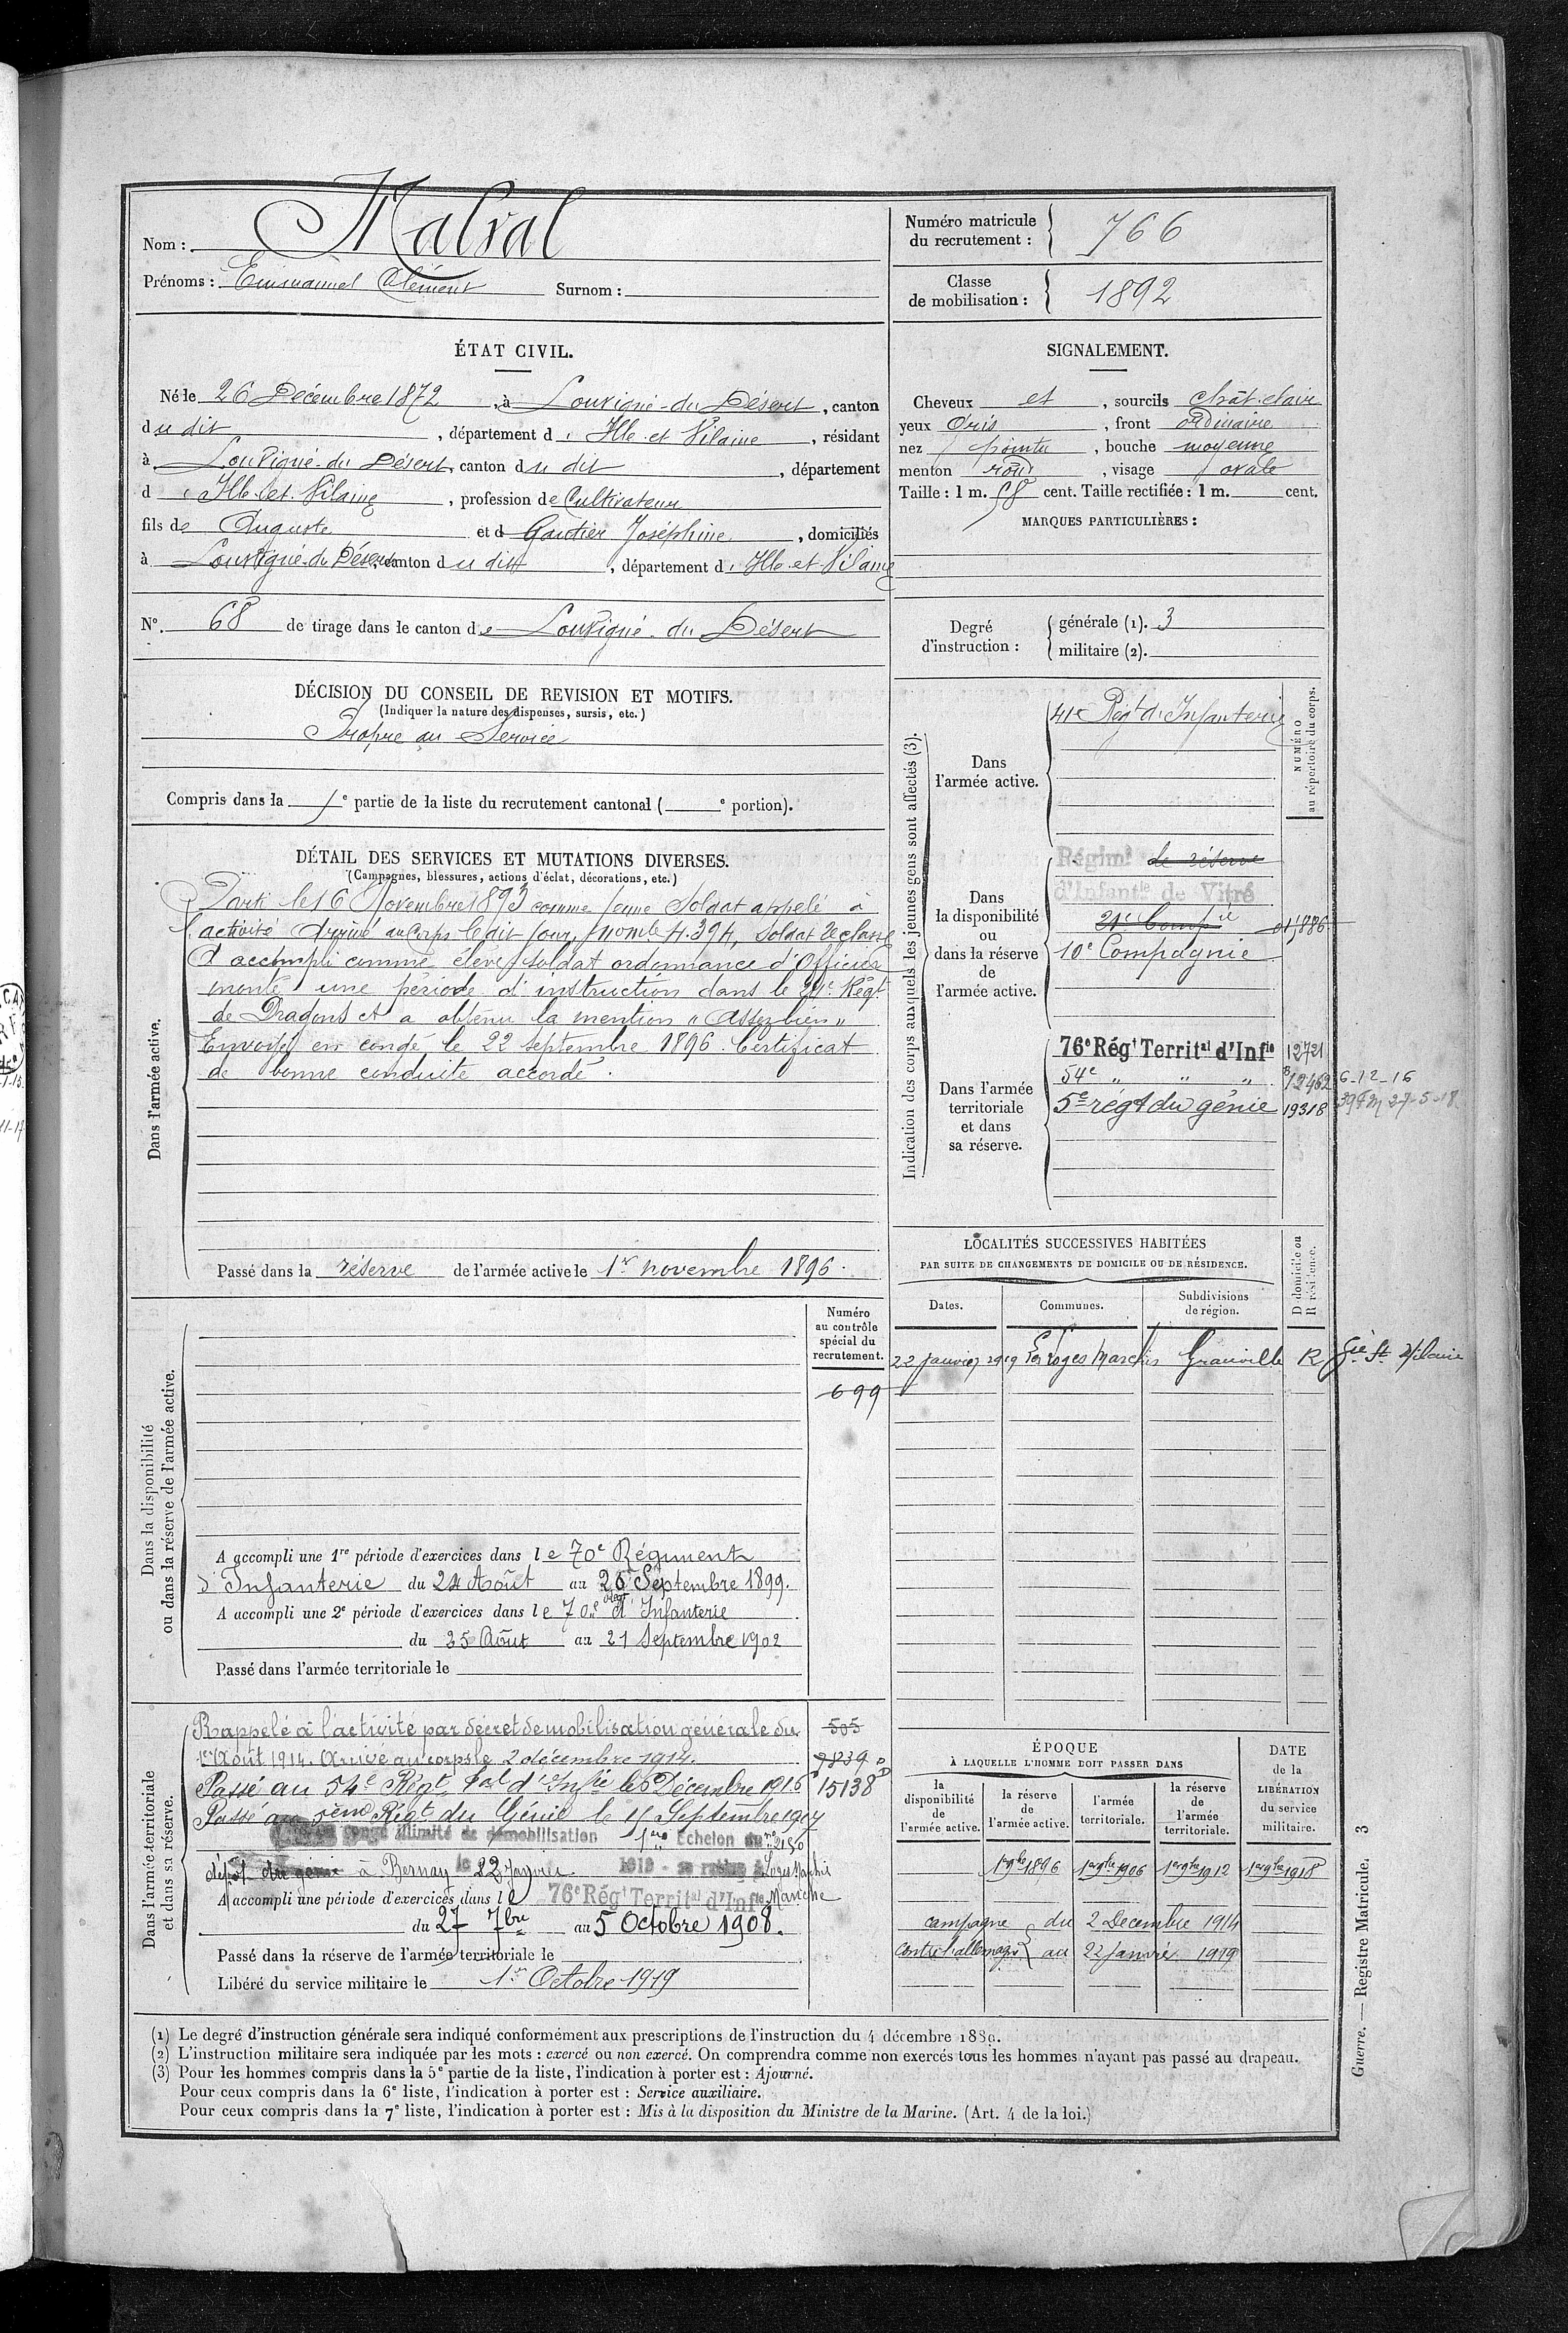 Nom : Malval
Prénoms : Emmanuel Clément Surnom :
Numéro matricule du recrutement : 766
Classe de mobilisation : 1892
ÉTAT CIVIL.
Né le 26 Décembre 1872, à Louvigné-du-Désert, canton
du dit, département d'Ille et Vilaine, résidant
à Louvigné-du Désert, canton du dit, département
d'Ille-et-Vilaine, profession de Cultivateur
fils de Auguste et d Gautier Joséphine, domiciliés
à Louvigné-du Désert, canton du dit, département d'Ille-et-Vilaine
N° 68 de tirage dans le canton de Louvigné-du Désert
SIGNALEMENT.
Cheveux et, sourcils chât-clair
yeux Gris, front ordinaire
nez pointu, bouche moyenne
menton rond, visage ovale
Taille : 1 m. 58 cent. Taille rectifiée : 1 m. cent.
MARQUES PARTICULIÈRES :
Degré d'instruction : générale (1). 3
militaire (2).
DÉCISION DU CONSEIL DE REVISION ET MOTIFS.
(Indiquer la nature des dispenses, sursis, etc.)
Propre au Service
Compris dans la 1e partie de la liste du recrutement cantonal ( e portion).
DÉTAIL DES SERVICES ET MUTATIONS DIVERSES.
(Campagnes, blessures, actions d'éclat, décorations, etc.)
Dans l'armée active.
Parti le 16 Novembre 1893 comme jeune Soldat appelé à
l'activité Arrivé au Corps le dit jour, n° mle 4.394, Soldat 2e classe
A accompli comme élève soldat ordonnance d'Officier
monté une période d'instruction dans le 24e Régt
de Dragons et a obtenu la mention "Assez bien"
Envoyé en congé le 22 septembre 1896. Certificat
de bonne conduite accordé.
Passé dans la réserve de l'armée active le 1er novembre 1896.
Indication des corps auxquels les jeunes gens sont affectés (3).
NUMÉRO au répertoire du corps.
Dans l'armée active.
41e Régt d'Infanterie
Dans la disponibilité ou dans la réserve de l'armée active.
Régimt de réserve
d'Infantie de Vitré
21e Compie 01,886
10e Compagnie
Dans l'armée territoriale et dans sa réserve.
76e Régt Territal d'Infie 12721
54e " " " 12462 6-12-16
5e régt du génie 19318 27-5-18
LOCALITÉS SUCCESSIVES HABITÉES
PAR SUITE DE CHANGEMENTS DE DOMICILE OU DE RÉSIDENCE.
Dates. Communes. Subdivisions de région. D domicile ou R résidence.
22 janvier 1919 Les Loges Marchis Granville R Gie St Hilaire
Dans la disponibilité ou dans la réserve de l'armée active.
Numéro au contrôle spécial du recrutement.
699
A accompli une 1re période d'exercices dans le 70e Régiment
d'Infanterie du 24 Août au 20 Septembre 1899.
A accompli une 2e période d'exercices dans le 70e Régt d'Infanterie
du 25 Août au 21 Septembre 1902
Passé dans l'armée territoriale le
Dans l'armée territoriale et dans sa réserve.
Rappelé à l'activité par décret de mobilisation générale du 505
1er Août 1914. Arrivé au corps le 2 décembre 1914. 9839
Passé au 54e Régt Tal d'Infie le 6 Décembre 1916 15138
Passé au 5ème Régt du Génie le 11 Septembre 1917
congé illimité de démobilisation 1er Echelon n° 2150
dépôt du génie à Bernay le 22 Janvier 1919 - se retire à Loges Marchis
Manche
A accompli une période d'exercices dans le 76e Régt Territal d'Infie
du 27 7bre au 5 Octobre 1908.
Passé dans la réserve de l'armée territoriale le
Libéré du service militaire le 1er Octobre 1919
ÉPOQUE
À LAQUELLE L'HOMME DOIT PASSER DANS
la disponibilité de l'armée active. la réserve de l'armée active. l'armée territoriale. la réserve de l'armée territoriale. DATE de la LIBÉRATION du service militaire.
1er 9bre 1896 1er 8bre 1906 1er 8bre 1912 1er 8bre 1918
campagne du 2 Décembre 1914
contre l'allemagne au 22 janvier 1919
(1) Le degré d'instruction générale sera indiqué conformément aux prescriptions de l'instruction du 4 décembre 1889.
(2) L'instruction militaire sera indiquée par les mots : exercé ou non exercé. On comprendra comme non exercés tous les hommes n'ayant pas passé au drapeau.
(3) Pour les hommes compris dans la 5e partie de la liste, l'indication à porter est : Ajourné.
Pour ceux compris dans la 6e liste, l'indication à porter est : Service auxiliaire.
Pour ceux compris dans la 7e liste, l'indication à porter est : Mis à la disposition du Ministre de la Marine. (Art. 4 de la loi.)
Guerre. — Registre Matricule. 3